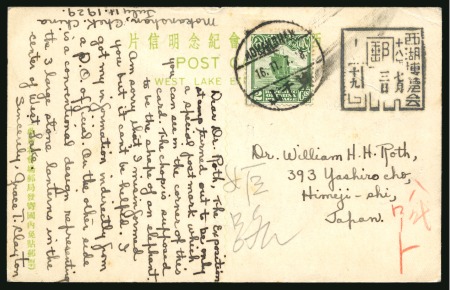 Mokanshan, Chek. China
July 14, 1929.
Dear Dr. Roth, The Exposition
stamp turned out to be only
a special post mark which
you can see on the corner of this
card. The chop is supposed
to be the shape of an elephant.
Am sorry that I misinformed
you but it can't be helped. I
got my information indirectly from
a P.O. official. On the other side
is a conventional design representing
the 3 large stone lanterns in the
center of West Lake.
Sincerely, Grace T. Clayton
片信明念紀會
POST C
WEST LAKE E
西湖博覽會
郵
Dr. William H. H. Roth,
393 Yashiro cho,
Himeji-shi,
Japan.
姫路